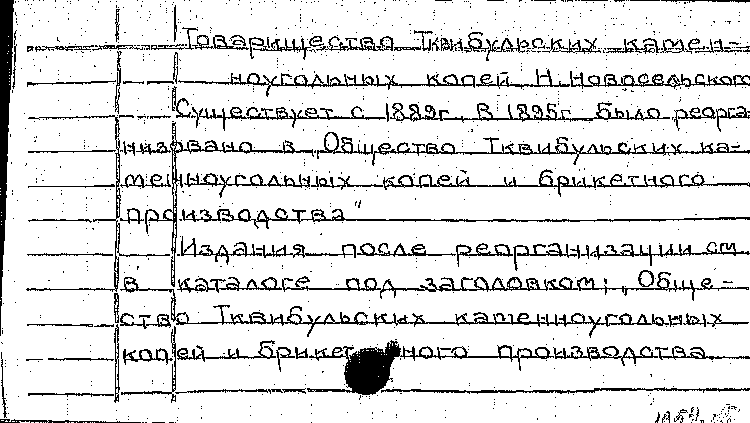 Товарищество Тквибульских камен-
ноугольных копей Н. Новосельского
Существует с 1889г. В 1895г было реорга-
низовано в „Общество Тквибульских ка-
менноугольных копей и брикетного
производства"
Издания после реорганизации см.
в каталоге под заголовком: „Обще-
ство Тквибульских каменноугольных
копей и брикетного производства.